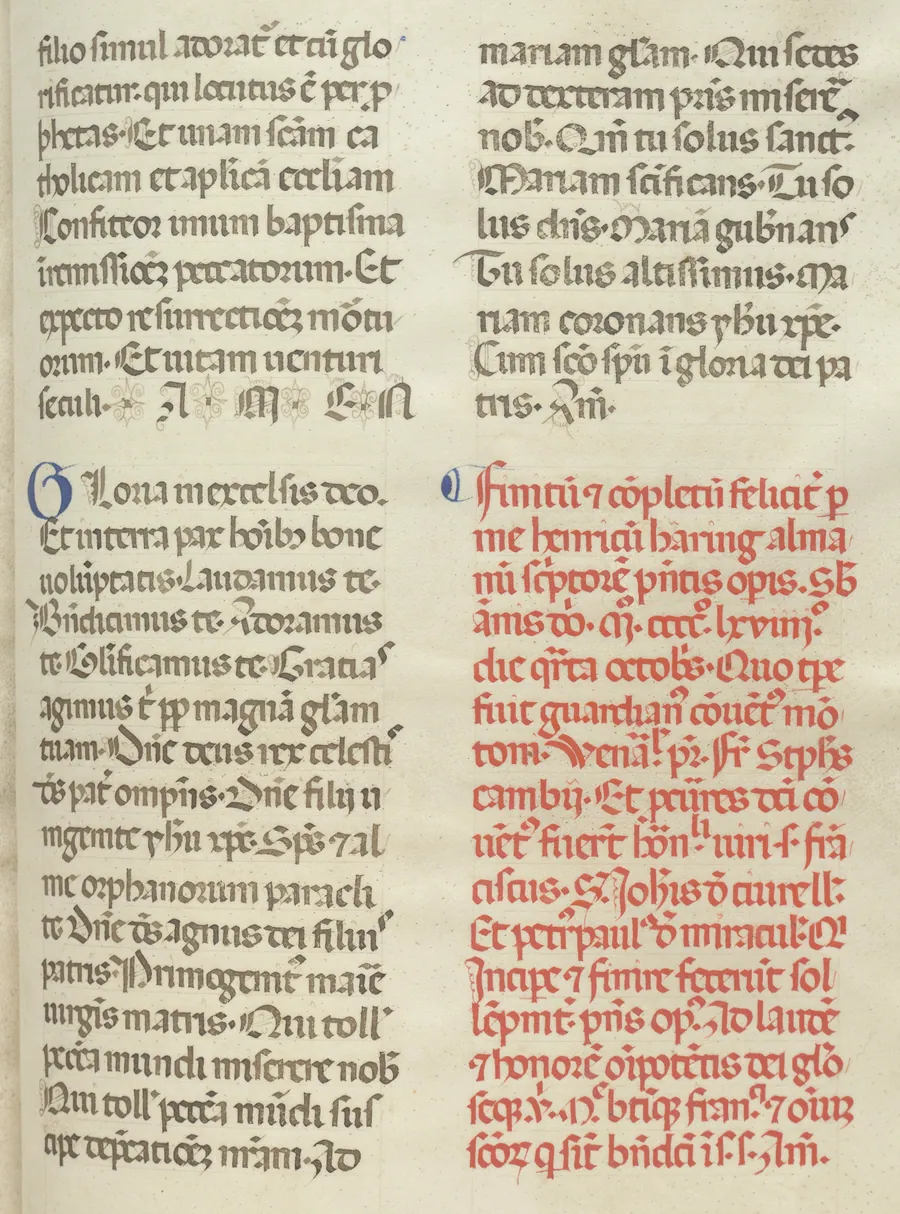 filio simul adorat̃ et cũ glo
rificatur. qui locutus ẽ per ꝓ
phetas. Et unam scãm ca
tholicam et aplicã eccliam
Confiteor unum baptisma
in remissiõez peccatorum. Et
expecto resurrectiõez mõtu
orum. Et uitam uenturi
seculi. A M E N
GLoria in excelsis deo.
Et in terra pax hoĩbꝰ bone
uolũptatis. Laudamus te.
Bñdicimus te. Adoramus
te. Glificamus te. Gracias
agimus t̃ ꝓp magnã glãm
tuam. Dñe deus rex celestis
ds pat̃ omp̃ns. Dñe filij u
nigenite yhũ xpẽ. Spũs ⁊ al
me orphanorum paracli
te. Dñe ds agnus dei filius
patris. Primogenit̃ marie
uirgis matris. Qui toll'
pccã mundi miserere nob̃
Qui toll' peccã mũdi sus
cipe dep̃catiõez nr̃am. Ad
mariam glãm. Qui sedes
ad dexteram pr̃is miserẽ
nob̃. Qm̃ tu solus sanct̃.
Mariam scificans. Tu so
lus dñs. Mariã gub̃nans
Tu solus altissimus. Ma
riam coronans yhũ xpẽ.
Cum scõ spũ ĩ gloria dei pa
tris. Am̃.
finitũ ⁊ cõpletũ felicit̃ p
me henricũ haring alma
nũ sc̃ptorẽ pñtis opis. Sb̃
ãnis dõ. M. cccc. lxviiijº.
die qr̃ta octob̃s. Quo tp̃e
fuit guardianꝰ cõuẽtꝰ mõ
tom. Venãl' pr̃. fr̃ Steph̃s
cambij. Et peũres dci cõ
uẽtꝰ fuer̃t hõn iuri. s. frã
ciscus. S. Joh̃is d̃ ciurell.
Et petrꝰ paul' d̃ miracul. Qⁱ
Incipe ⁊ finire fecerũt sol
lẽpmt̃. pñs opꝰ. Ad laudẽ
⁊ honorẽ oĩpotẽtis dei glõ
seqꝫ. v̾. Mᵉ. btĩqꝫ franᶜⁱ. ⁊ oĩuꝫ
scõꝝ q sit̃ bñdcĩ ĩ. s. s. Am̃.